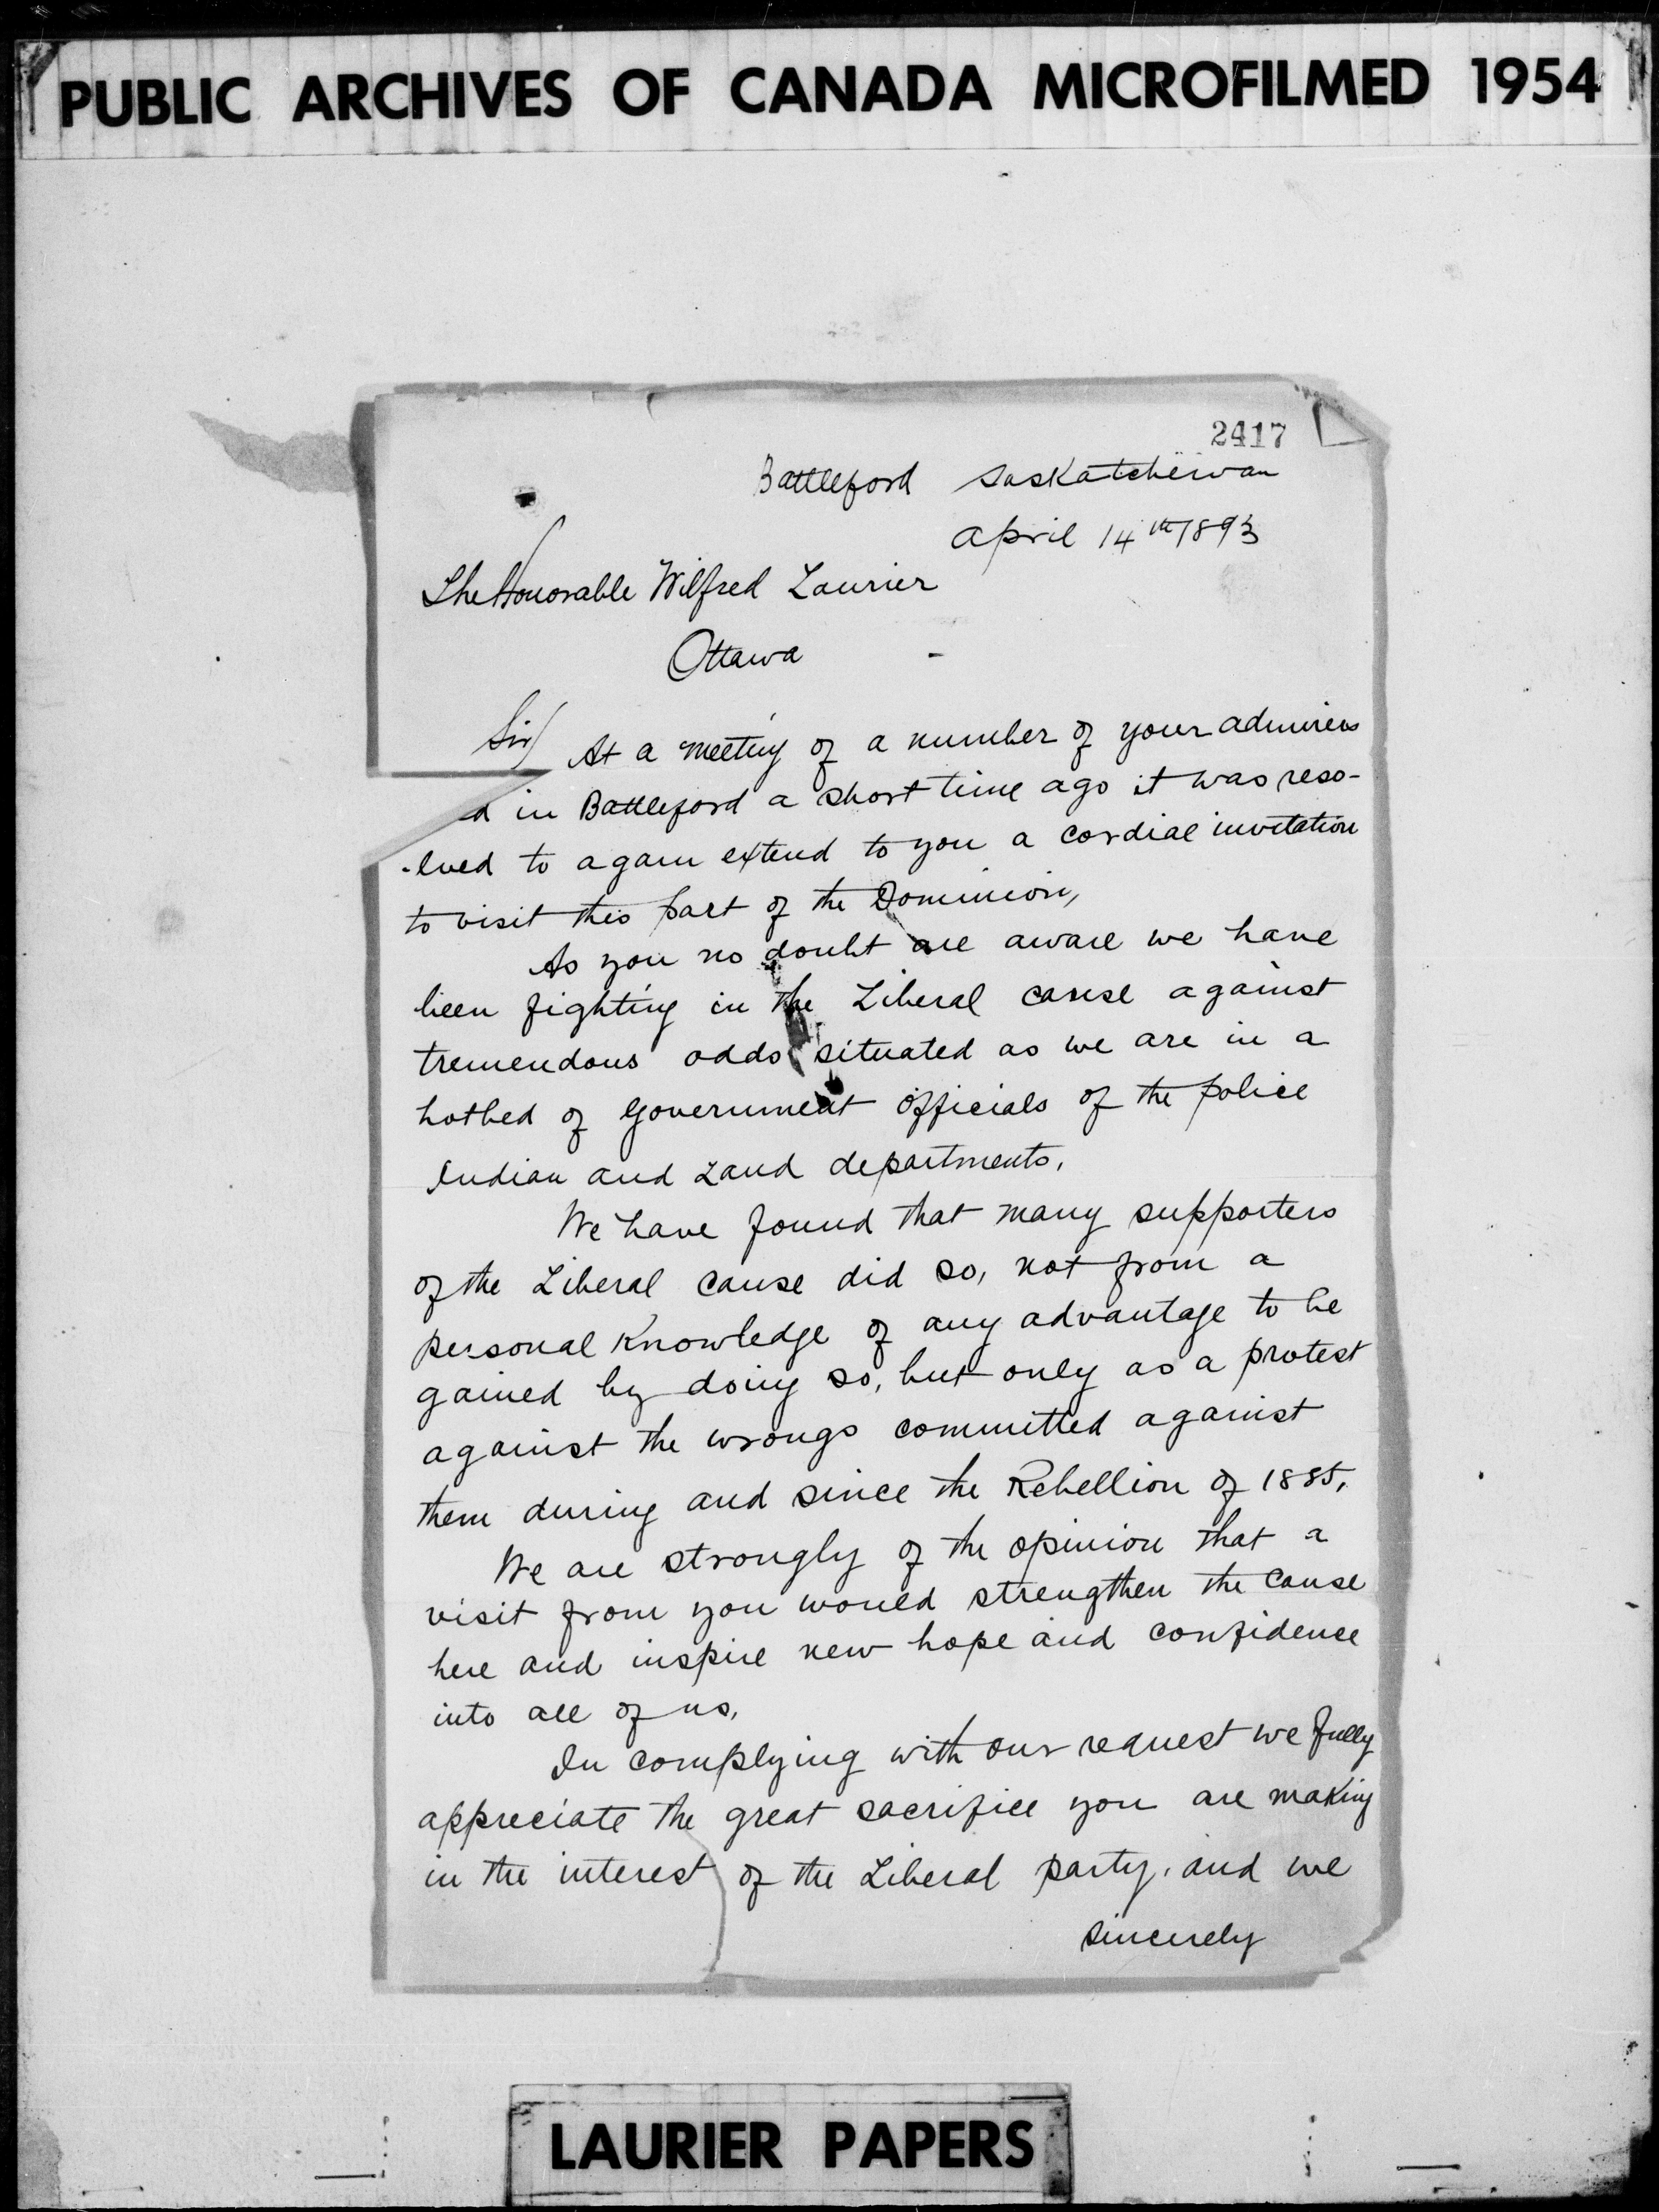 PUBLIC ARCHIVES OF CANADA MICROFILMED 1954
2417
Battleford Saskatchewan
April 14th 1893
The Honorable Wilfred Laurier
Ottawa
Sir/ At a meeting of a number of your admirers
d in Battleford a short time ago it was reso-
-lved to again extend to you a cordial invitation
to visit this part of the Dominion,
As you no doubt are aware we have
been fighting in the Liberal cause against
tremendous odds situated as we are in a
hotbed of Government officials of the police
Indian and Land departments.
We have found that many supporters
of the Liberal cause did so, not from a
personal knowledge of any advantage to be
gained by doing so, but only as a protest
against the wrongs committed against
them during and since the Rebellion of 1885,
We are strongly of the opinion that a
visit from you would strengthen the cause
here and inspire new hope and confidence
into all of us,
In complying with our request we fully
appreciate the great sacrifice you are making
in the interest of the Liberal party, and we
sincerely
LAURIER PAPERS